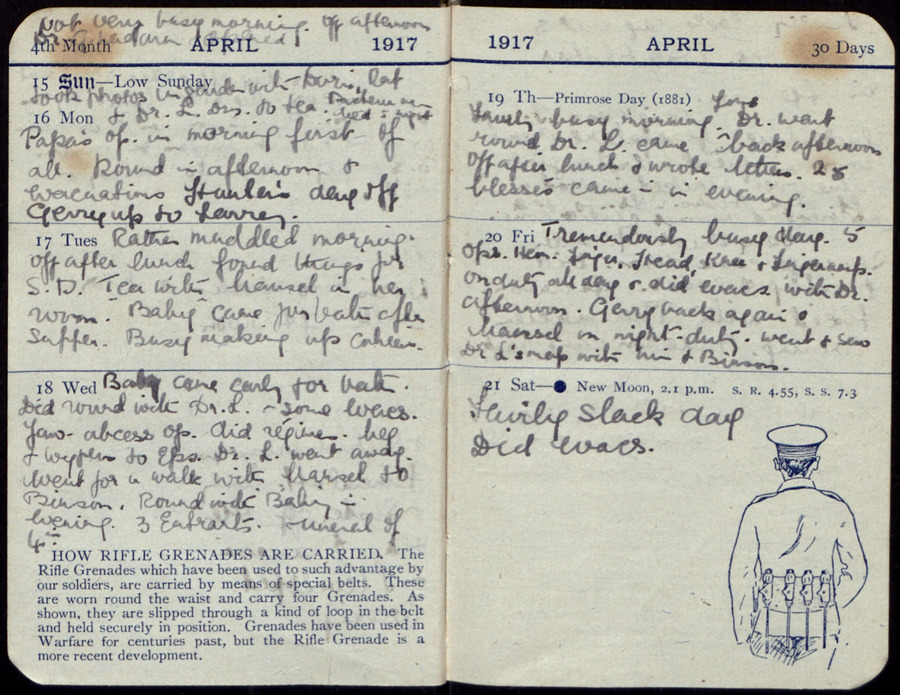 Not very busy morning. Off afternoon
4th Month APRIL 1917
15 Sun—Low Sunday
took photos in with Doris, Cat
16 Mon & Dr. L. Drs. to tea.
Papa's op. in morning first of
all. Round in afternoon &
evacuations Hunter's day off
Gerry up to
17 Tues Rather muddled morning.
off after lunch found things for
S.D. Tea with Mansel in her
room. "Baby" came for bath after
Supper. Busy making up
18 Wed Baby came early for bath.
Did round with Dr. L. - some evacs.
Jaw-abcess op. did régimes. Meg
& to Eps. Dr. L. went away.
Went for a walk with Mansel to
Binson. Round with Baby in
evening. 3 Entrants. Funeral of
4
HOW RIFLE GRENADES ARE CARRIED. The
Rifle Grenades which have been used to such advantage by
our soldiers, are carried by means of special belts. These
are worn round the waist and carry four Grenades. As
shown, they are slipped through a kind of loop in the belt
and held securely in position. Grenades have been used in
Warfare for centuries past, but the Rifle Grenade is a
more recent development.
1917 APRIL 30 Days
19 Th—Primrose Day (1881)
Fairly busy morning Dr. went
round Dr. L. came back afternoon
Off after lunch & wrote letters. 28
blessés came in in evening.
20 Fri Tremendously busy day. 5
ops. Head, Knee &
on duty all day & did evacs with Dr.
afternoon. Gerry back again &
Mansel on night-duty. Went & saw
Dr L's map with him & Binson.
21 Sat— New Moon, 2.1 p.m. S. R. 4.55, S. S. 7.3
Fairly slack day
Did evacs.